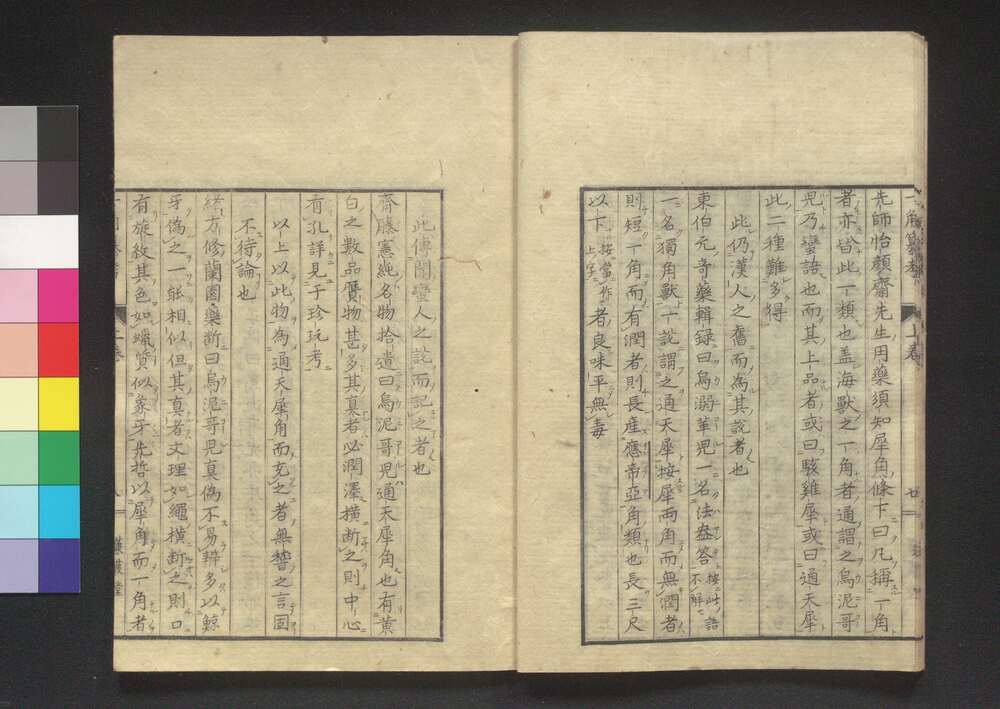 先師怡顔齋先生用藥須知犀角條下曰凡稱一角
者亦皆此一類也盖海獸之一角者通謂之烏泥哥
児乃蠻語也而其上品者或曰駭雞犀或曰通天犀
此二種難多得
此仍漢人之舊而為其説者也
東伯元奇藥輯録曰烏溺革児一名法盎答按此語不解
一名獨角獣一説謂之通天犀按犀両角而無潤者
則短一角而有潤者則長産應帝亞角類也長三尺
以下按當作上字者良味平無毒
此傳聞蠻人之説而記之者也
齋藤憲純名物拾遺曰烏泥哥児通天犀角也有薫
白之數品贋物甚多其真者必潤澤横断之則中心
有孔詳見于珍玩考
以上以此物為通天犀角而充之者無誓之言固
不待論也
緒方修蘭園藥断曰烏泥哥児真偽不易辨多以鯨
牙偽之一能相似但其真者文理如繩横断之則口
有旋紋其色如蠟質似象牙先哲以犀角而一角者